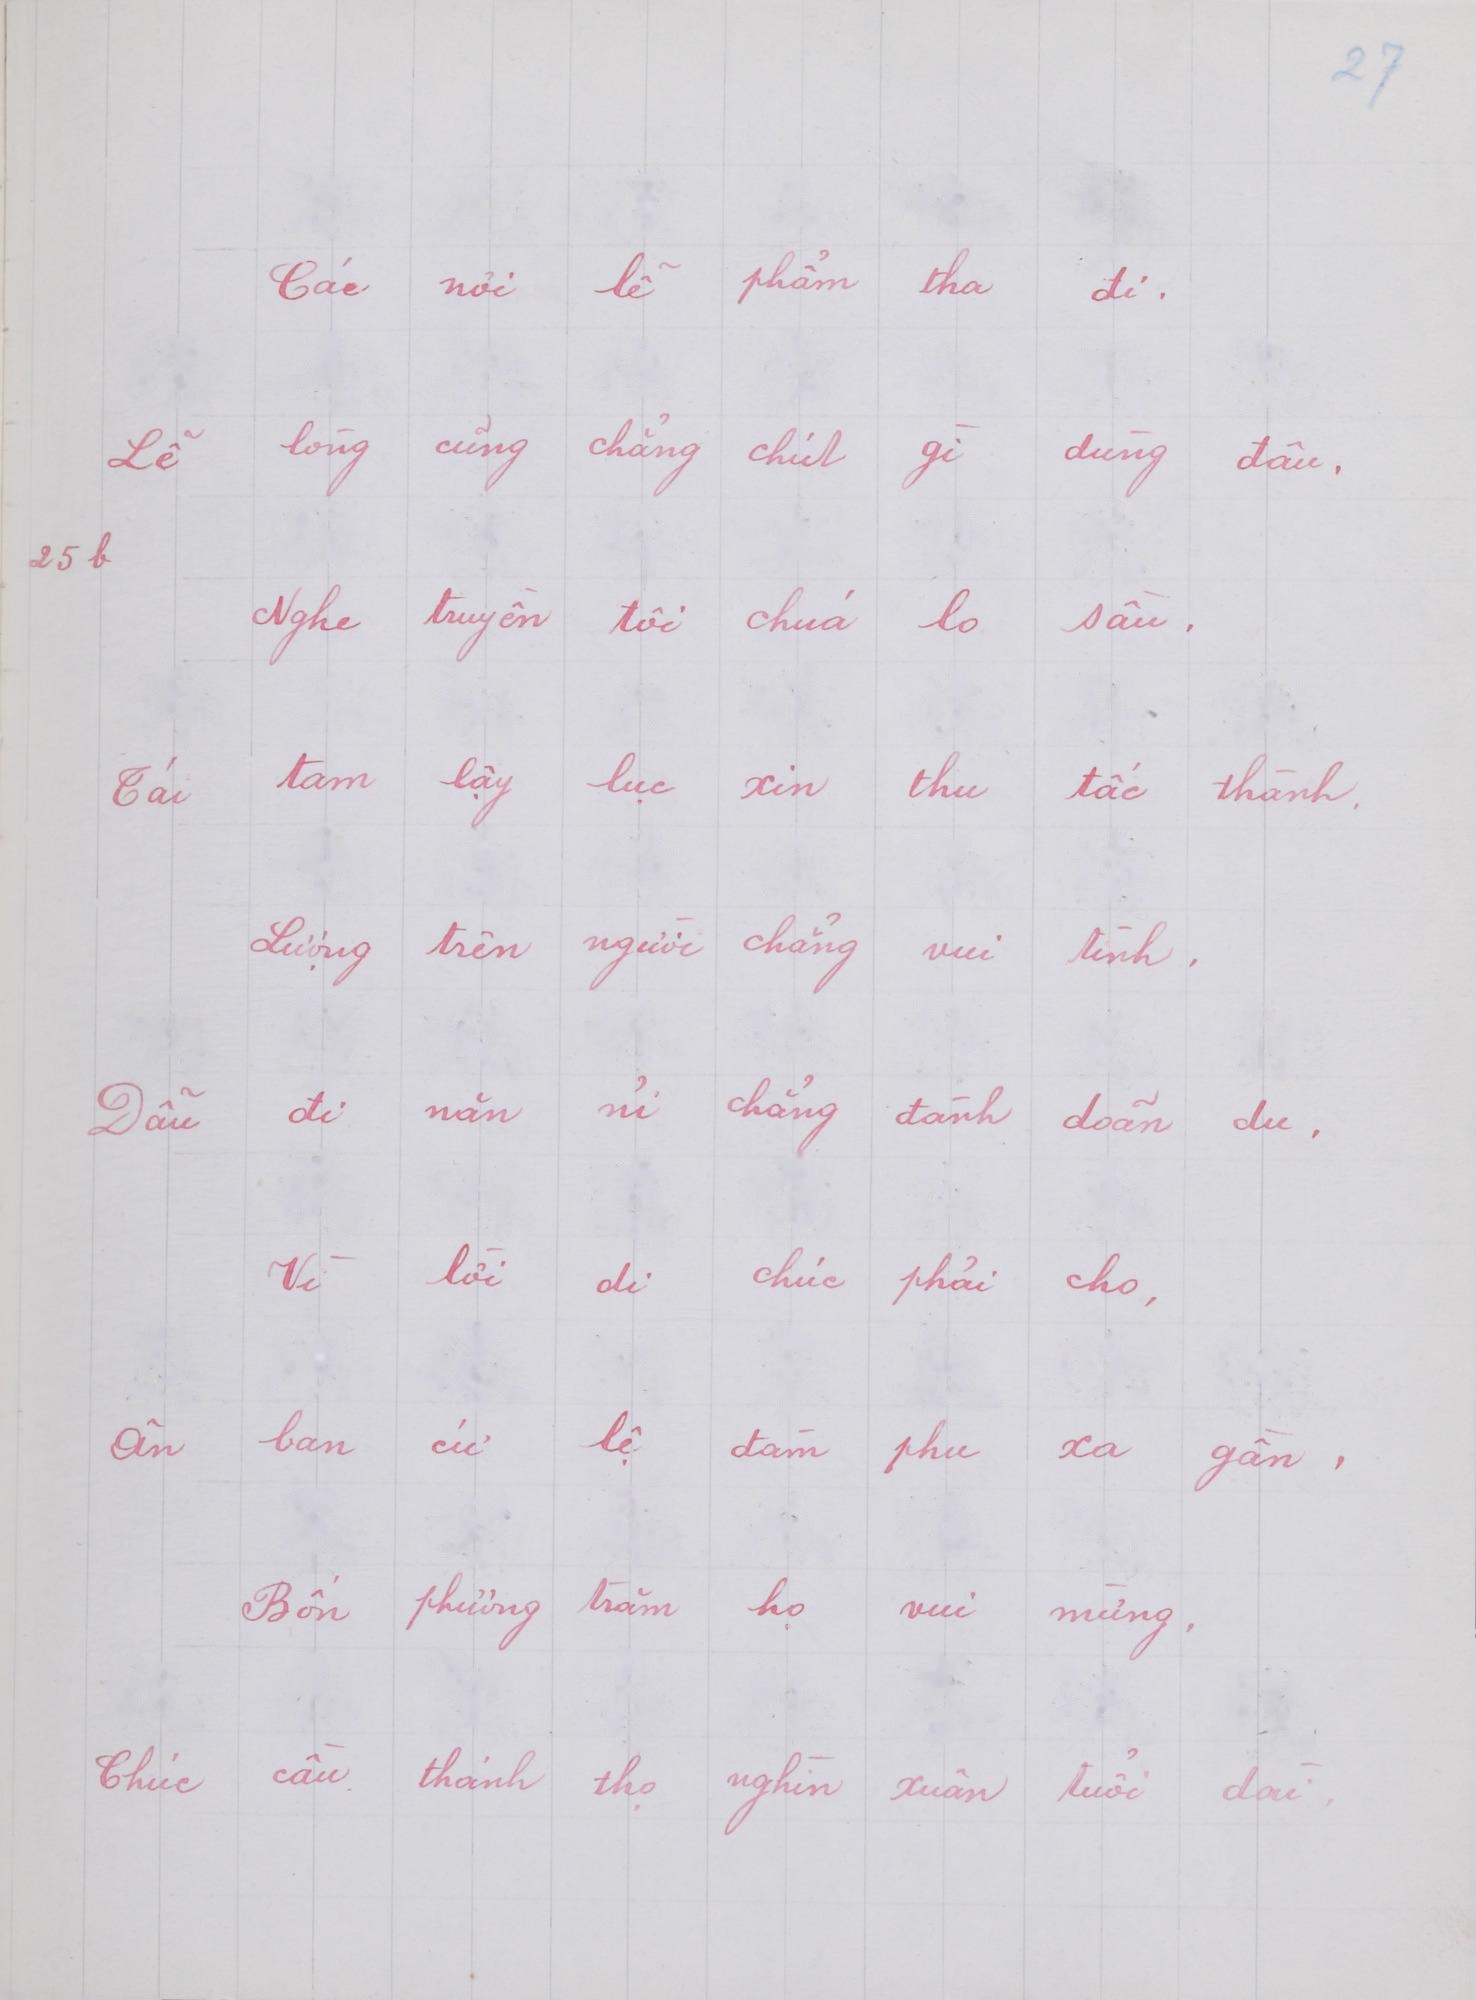 27
Các nơi lễ phẩm tha đi.
Lễ lòng cũng chẳng chút gì dùng đâu,
25 b
Nghe truyền tôi chúa lo sầu,
Tái tam lậy lục xin thu tấc thành,
Lượng trên người chẳng vui tình,
Dẫu đi năn nỉ chẳng đành doãn du,
Vì lời di chúc phải cho,
Ân ban cứ lệ đàm phu xa gần,
Bốn phương trăm họ vui mừng,
Chúc cầu thánh thọ nghìn xuân tuổi dài.